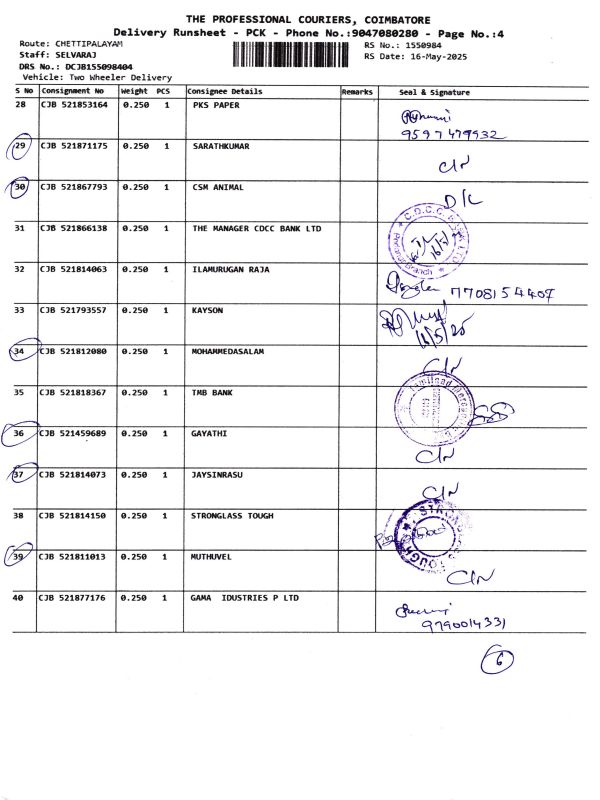 THE PROFESSIONAL COURIERS, COIMBATORE
Delivery Runsheet - PCK - Phone No.:9047080280 - Page No.:4
Route: CHETTIPALAYAM RS No.: 1550984
Staff: SELVARAJ RS Date: 16-May-2025
DRS No.: DCJB155098404
Vehicle: Two Wheeler Delivery
S No Consignment No Weight PCS Consignee Details Remarks Seal & Signature
28 CJB 521853164 0.250 1 PKS PAPER
9597479932
29 CJB 521871175 0.250 1 SARATHKUMAR C/N
30 CJB 521867793 0.250 1 CSM ANIMAL D/L
31 CJB 521866138 0.250 1 THE MANAGER CDCC BANK LTD
32 CJB 521814063 0.250 1 ILAMURUGAN RAJA
7708154407
33 CJB 521793557 0.250 1 KAYSON
16/5/25
34 CJB 521812080 0.250 1 MOHAMMEDASALAM C/N
35 CJB 521818367 0.250 1 TMB BANK
36 CJB 521459689 0.250 1 GAYATHI C/N
37 CJB 521814073 0.250 1 JAYSINRASU C/N
38 CJB 521814150 0.250 1 STRONGLASS TOUGH
39 CJB 521811013 0.250 1 MUTHUVEL C/N
40 CJB 521877176 0.250 1 GAMA IDUSTRIES P LTD
9790014331
6